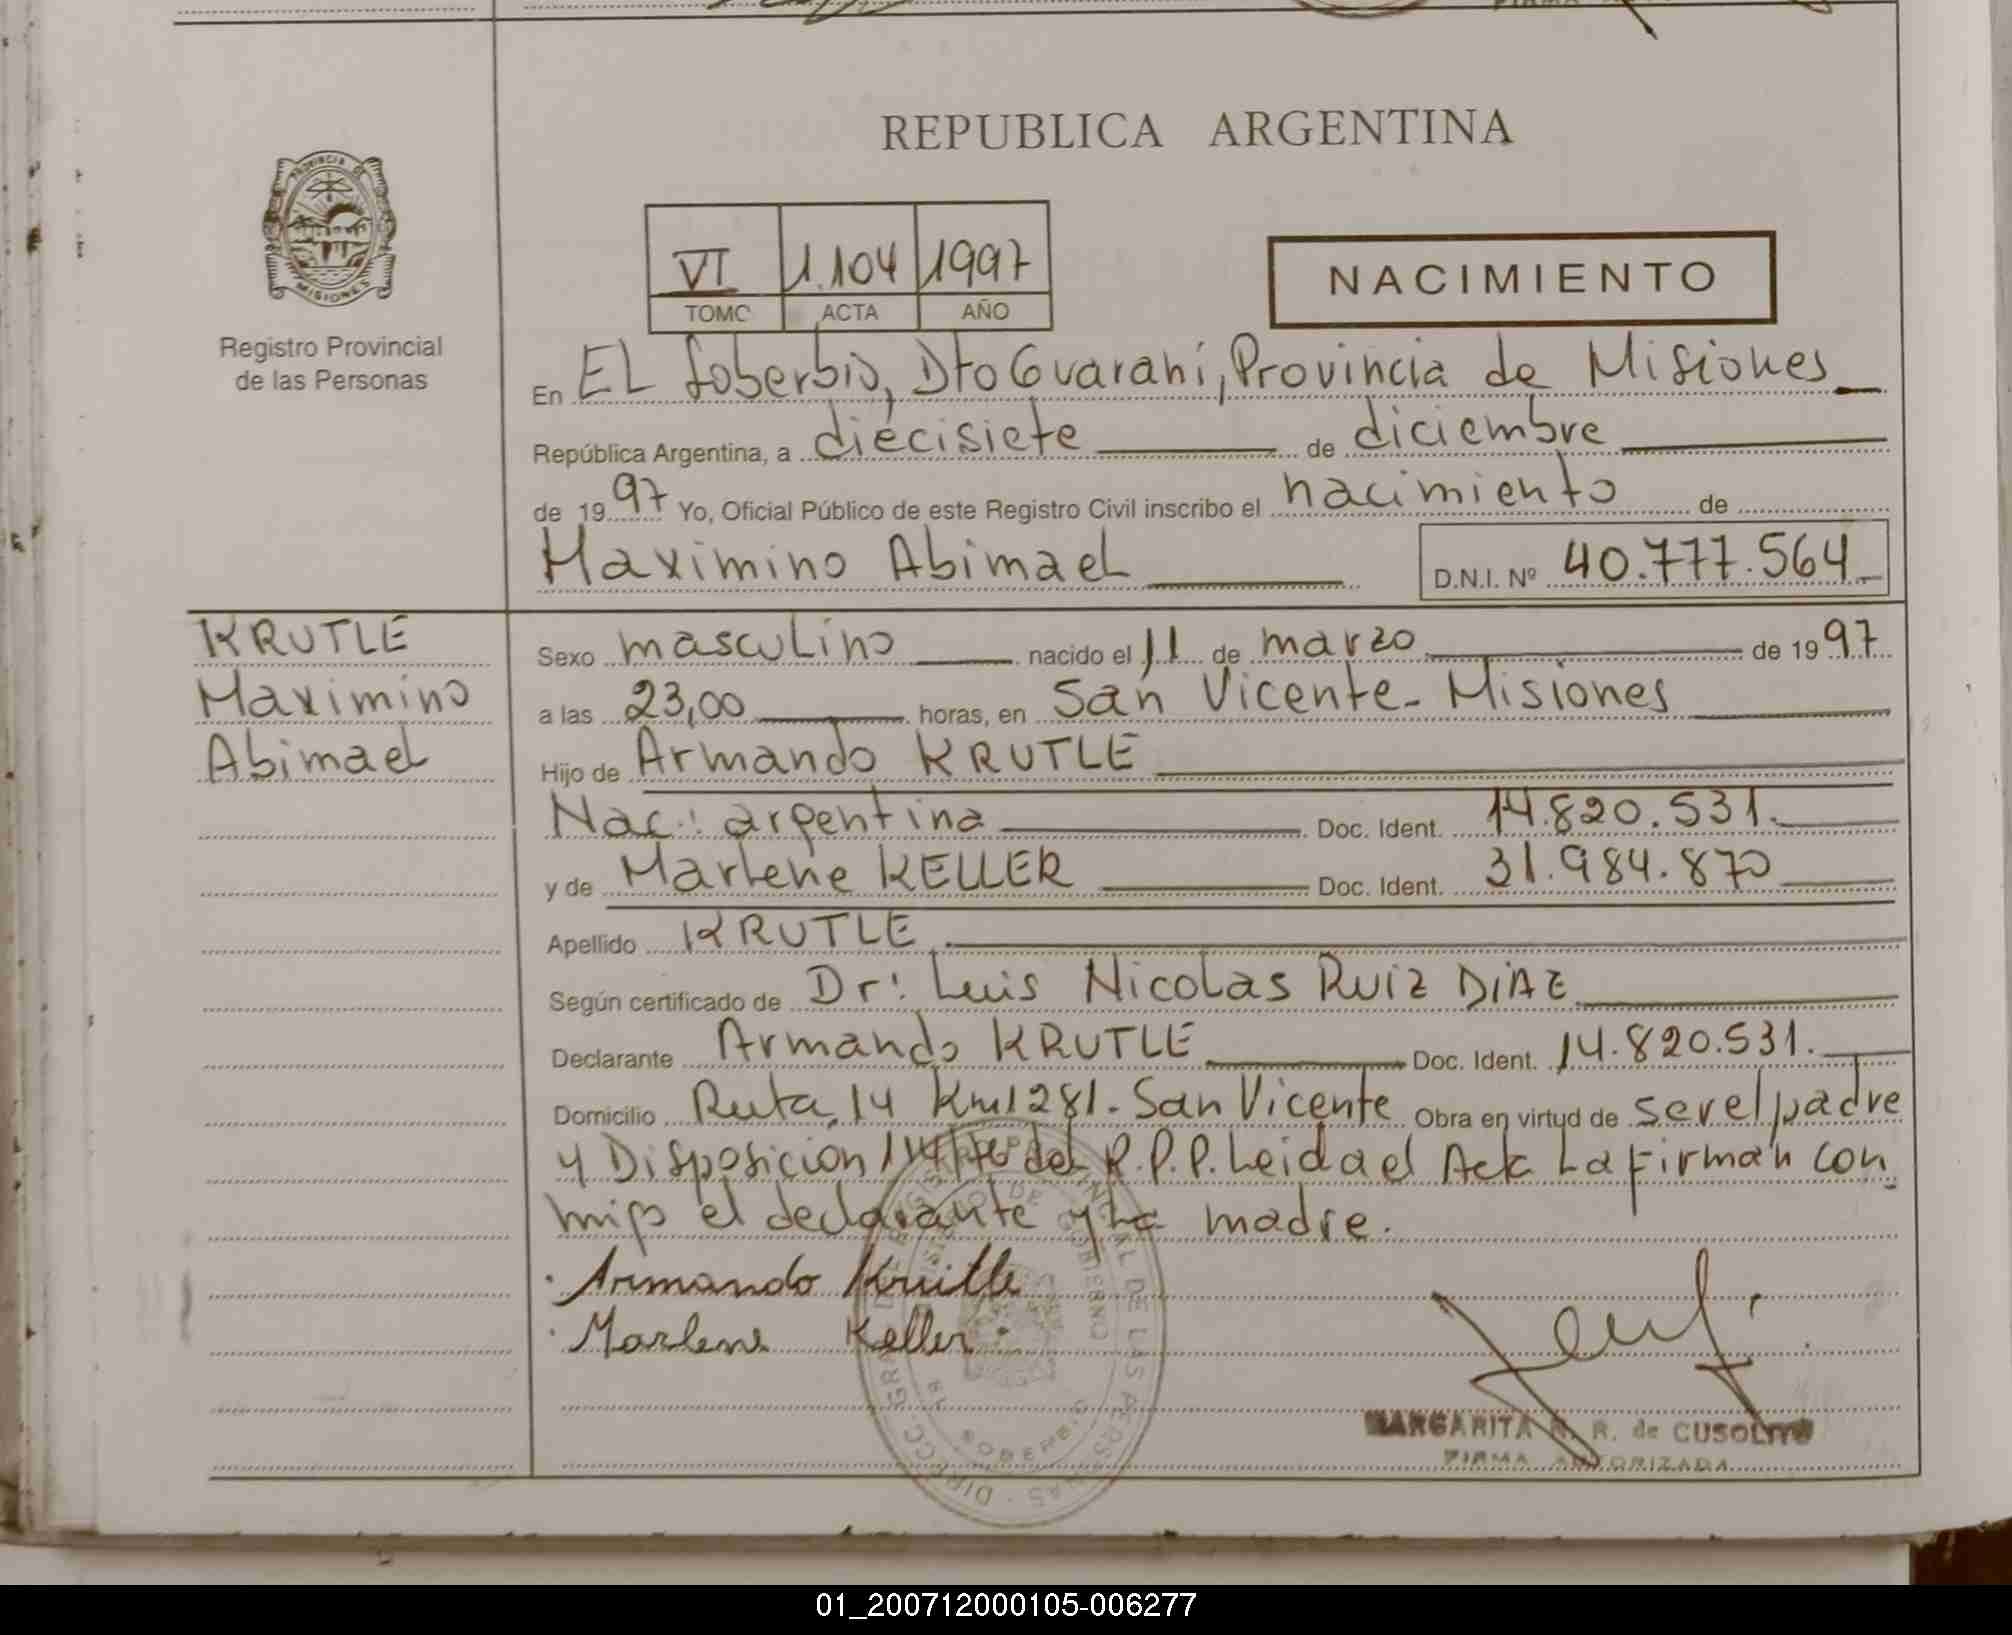 REPUBLICA ARGENTINA
PROVINCIA DE
MISIONES
Registro Provincial
de las Personas
VI 1.104 1997
TOMO ACTA AÑO
NACIMIENTO
En EL Soberbio, Dto Guarani, Provincia de Misiones
República Argentina, a diecisiete de diciembre
de 1997 Yo, Oficial Público de este Registro Civil inscribo el nacimiento de
Maximino Abimael D.N.I. Nº 40.777.564
KRUTLE
Maximino
Abimael
Sexo masculino nacido el 11 de marzo de 1997
a las 23,00 horas, en San Vicente - Misiones
Hijo de Armando KRUTLE
Nac: argentina Doc. Ident. 14.820.531.
y de Marlene KELLER Doc. Ident. 31.984.870
Apellido KRUTLE
Según certificado de Dr: Luis Nicolas Ruiz DiAZ
Declarante Armando KRUTLE Doc. Ident. 14.820.531.
Domicilio Ruta 14 Km 1281 - San Vicente Obra en virtud de ser el padre
y Disposicion del R.P.P. Leida el Acta La Firman con
migo el declarante y La madre.
Armando Krutle
Marlene Keller
MARGARITA R. de CUSOLITO
FIRMA AUTORIZADA
01_200712000105-006277